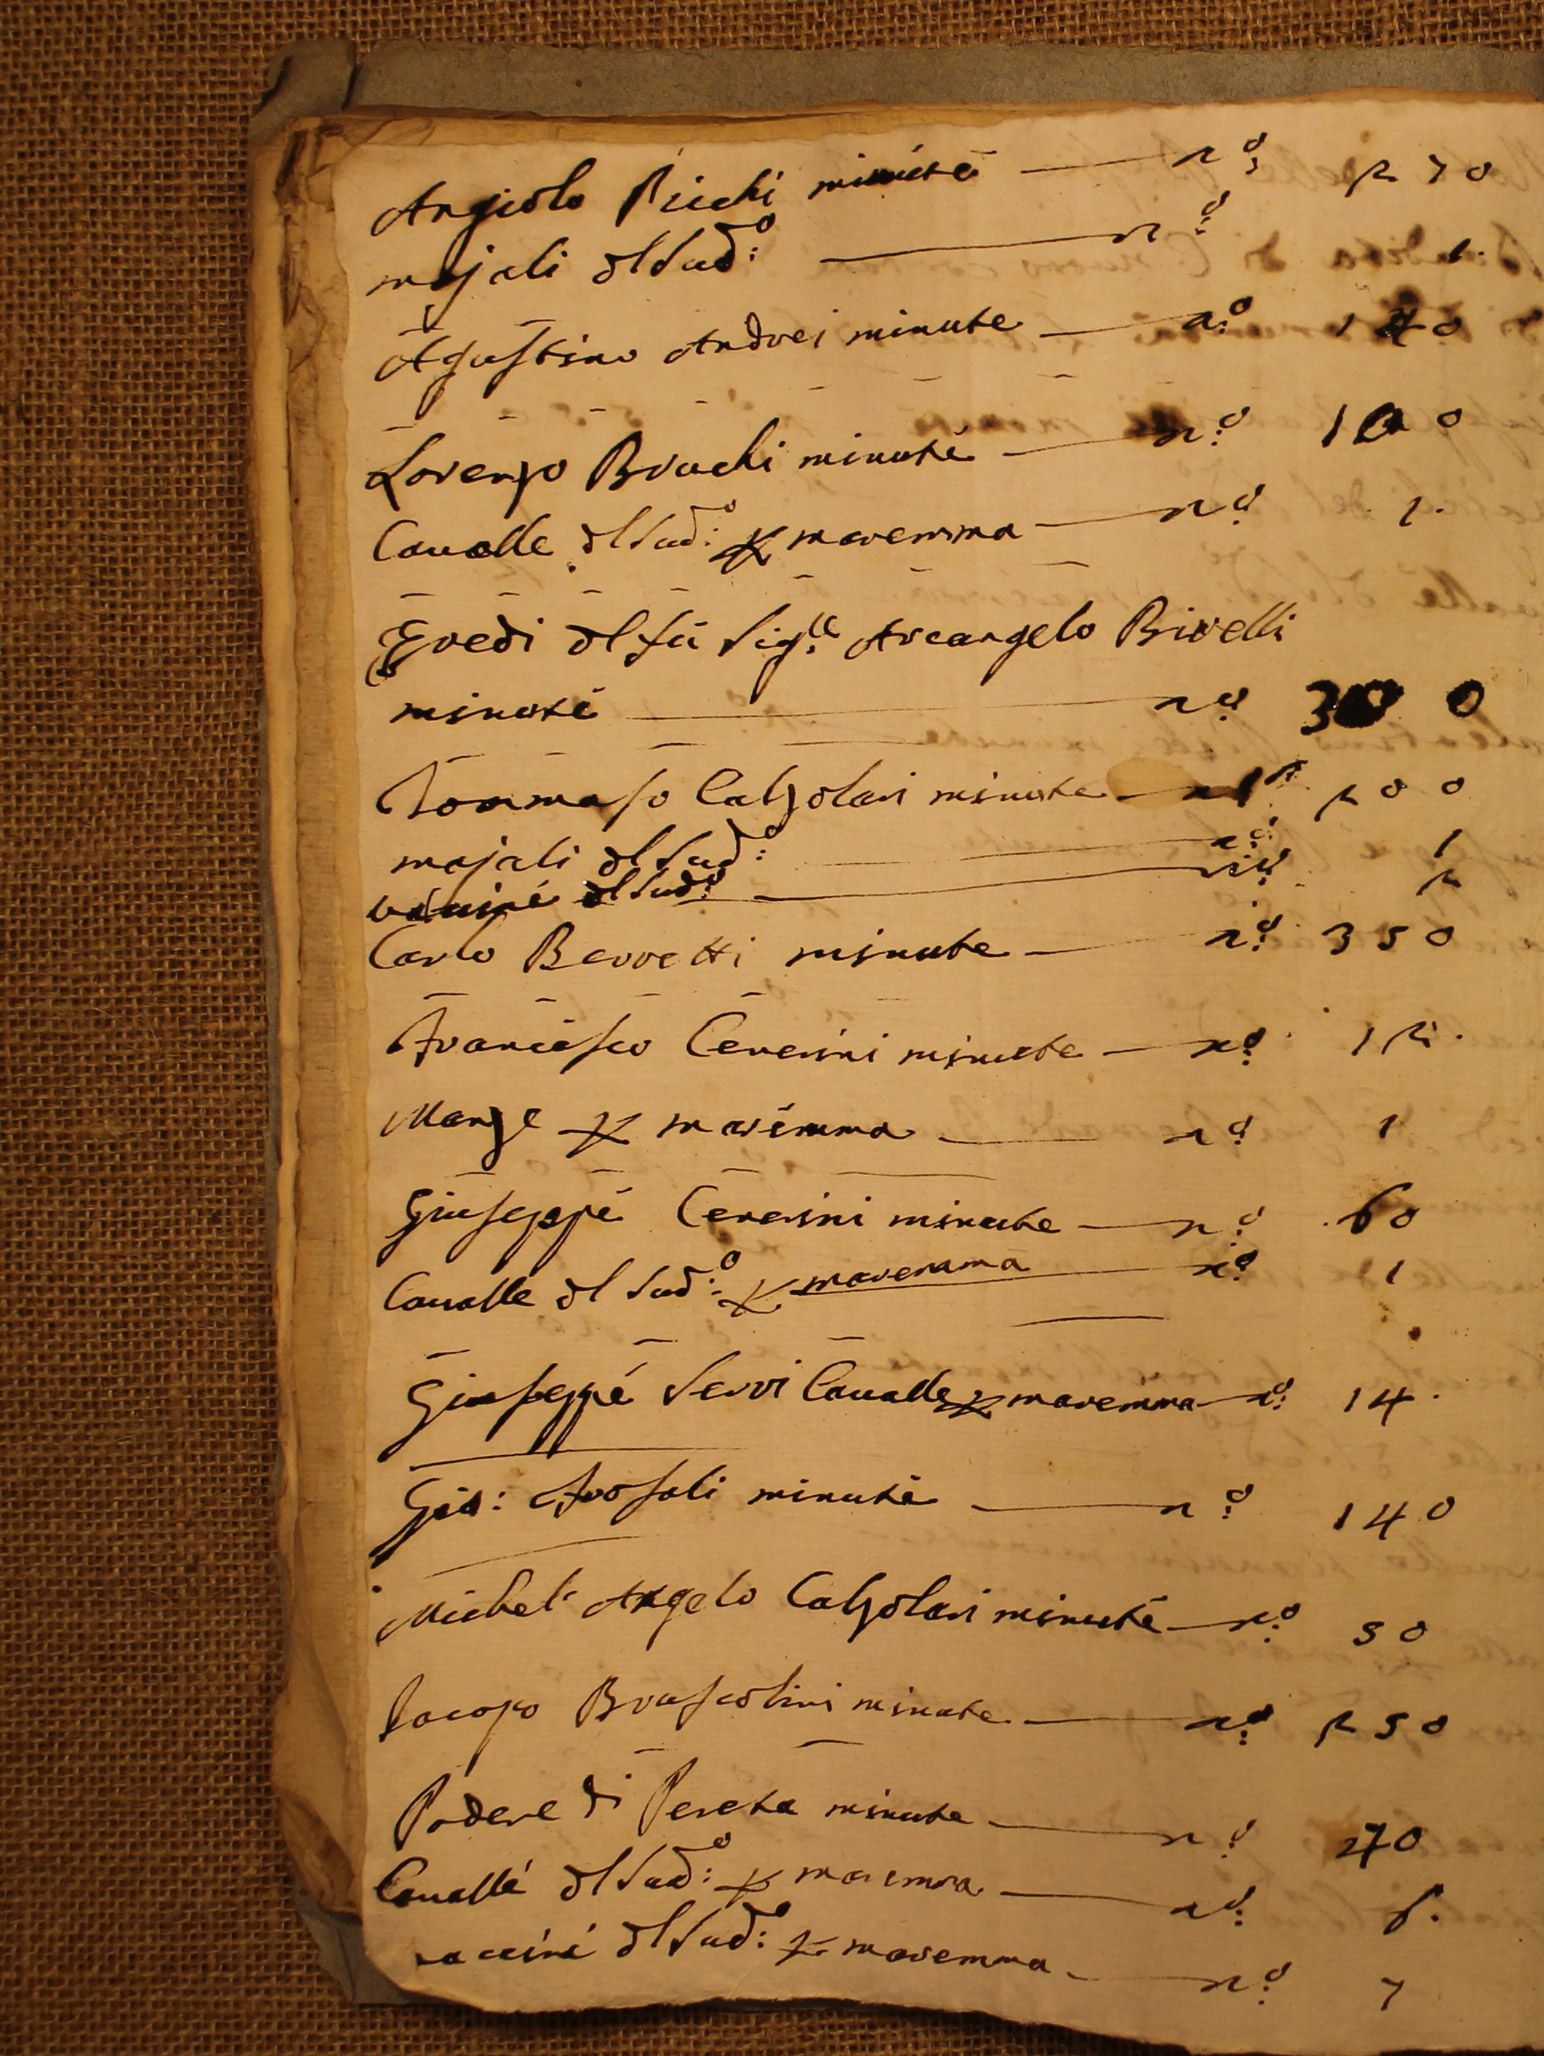 Angiolo Ricchi minute n.o 270
majali dl sud.o n.o 1.
Agustino Andrei minute n.o 140
Lorenzo Bruchi minute n.o 100
Caualle dl sud:o p maremma n.o 1.
Eredi dl fù Sig.re Arcangelo Birelli
minute n.o 300
Tommaso Calzolari minute n.o 200
majali dl sud:o n.o 1
vacine dl sud:o n.o 2
Carlo Berretti minute n.o 350
Francesco Cenerini minute n.o 12.
Manze p maremma n.o 1
Giuseppe Cenerini minute n.o 60
Caualle dl sud:o p maremma n.o 1
Giuseppe Servi Caualle p maremma n.o 14.
Gio: Frosali minute n.o 140
Michel' Angelo Calzolari minute n.o 50
Iacopo Bruscolini minute n.o 250
Podere di Pereta minute n.o 270
Caualle dl sud:o p maremma n.o 6.
vaccine dl sud:o p maremma n.o 7